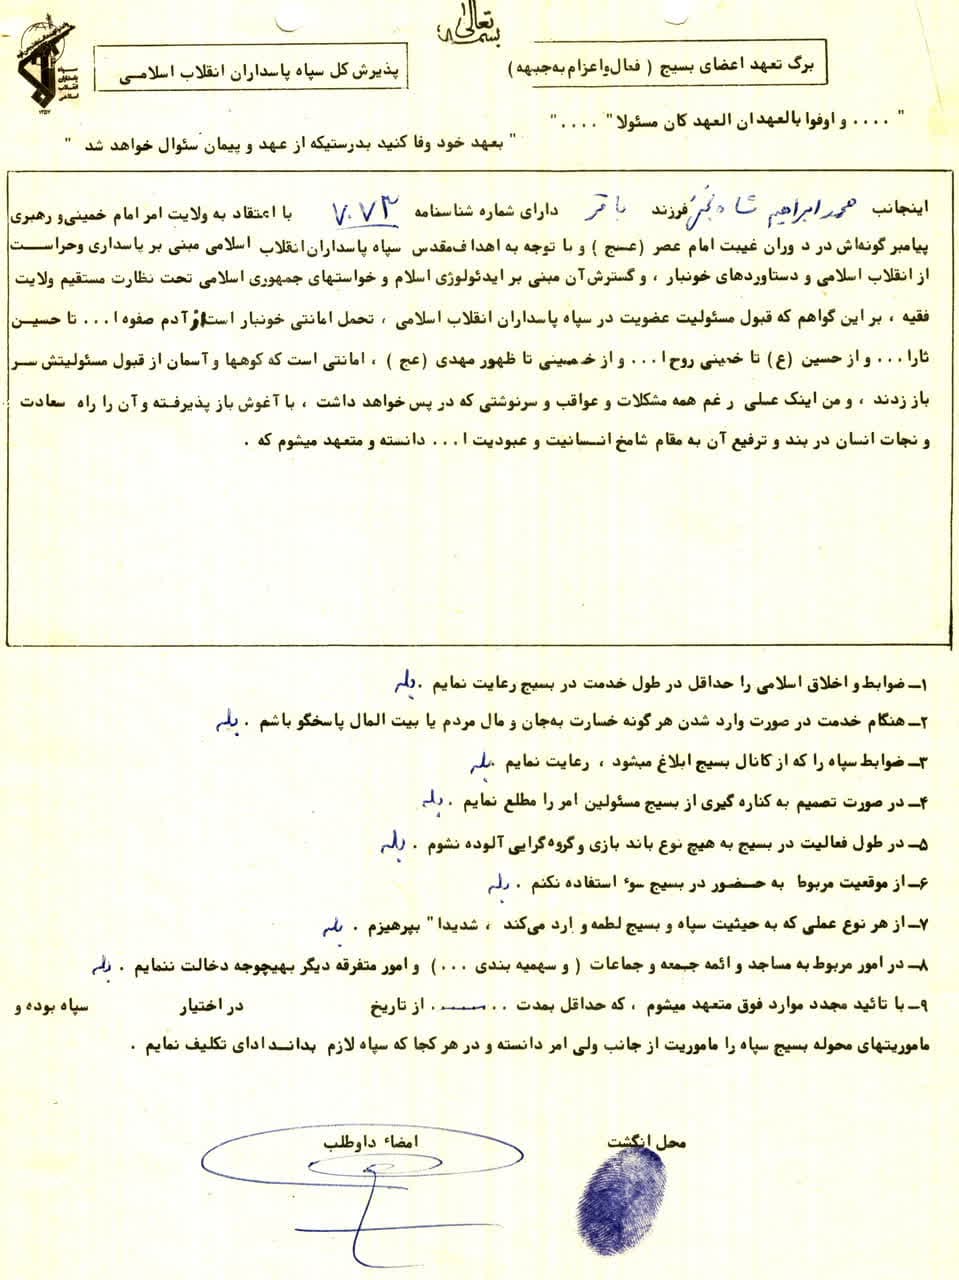 بسمه تعالی
سپاه پاسداران انقلاب اسلامی
۱۳۵۷
برگ تعهد اعضای بسیج ( فعال و اعزام به جبهه )
پذیرش کل سپاه پاسداران انقلاب اسلامی
" .... و اوفوا بالعهد ان العهد کان مسئولا " .... "
" بعهد خود وفا کنید بدرستیکه از عهد و پیمان سئوال خواهد شد "
اینجانب محمد ابراهیم شاه فرزند باقر دارای شماره شناسنامه ۷۰۷۳ با اعتقاد به ولایت امر امام خمینی و رهبری
پیامبر گونه‌اش در د وران غیبت امام عصر (عج ) و با توجه به اهداف مقدس سپاه پاسداران انقلاب اسلامی مبنی بر پاسداری وحراست
از انقلاب اسلامی و دستاوردهای خونبار ، و گسترش آن مبنی بر ایدئولوژی اسلام و خواستهای جمهوری اسلامی تحت نظارت مستقیم ولایت
فقیه ، بر این گواهم که قبول مسئولیت عضویت در سپاه پاسداران انقلاب اسلامی ، تحمل امانتی خونبار است از آدم صفوه ا... تا حسین
ثارا ... و از حسین (ع) تا خمینی روح ا... و از خمینی تا ظهور مهدی (عج ) ، امانتی است که کوهها و آسمان از قبول مسئولیتش سر
باز زدند ، و من اینک علی رغم همه مشکلات و عواقب و سرنوشتی که در پس خواهد داشت ، با آغوش باز پذیرفته و آن را راه سعادت
و نجات انسان در بند و ترفیع آن به مقام شامخ انسانیت و عبودیت ا... دانسته و متعهد میشوم که .
۱ــ ضوابط و اخلاق اسلامی را حداقل در طول خدمت در بسیج رعایت نمایم . بله
۲ــ هنگام خدمت در صورت وارد شدن هر گونه خسارت به‌جان و مال مردم یا بیت المال پاسخگو باشم . بله
۳ــ ضوابط سپاه را که از کانال بسیج ابلاغ میشود ، رعایت نمایم . بله
۴ــ در صورت تصمیم به کناره گیری از بسیج مسئولین امر را مطلع نمایم . بله
۵ــ در طول فعالیت در بسیج به هیچ نوع باند بازی و گروه گرایی آلوده نشوم . بله
۶ــ از موقعیت مربوط به حضور در بسیج سوء استفاده نکنم . بله
۷ــ از هر نوع عملی که به حیثیت سپاه و بسیج لطمه و ارد می‌کند ، شدیدا" بپرهیزم . بله
۸ــ در امور مربوط به مساجد و ائمه جمعه و جماعات ( و سهمیه بندی ...) و امور متفرقه دیگر بهیچوجه دخالت ننمایم . بله
۹ــ با تائید مجدد موارد فوق متعهد میشوم ، که حداقل بمدت ........ از تاریخ در اختیار سپاه بوده و
ماموریتهای محوله بسیج سپاه را ماموریت از جانب ولی امر دانسته و در هر کجا که سپاه لازم بداند ادای تکلیف نمایم .
محل انگشت
امضاء داوطلب